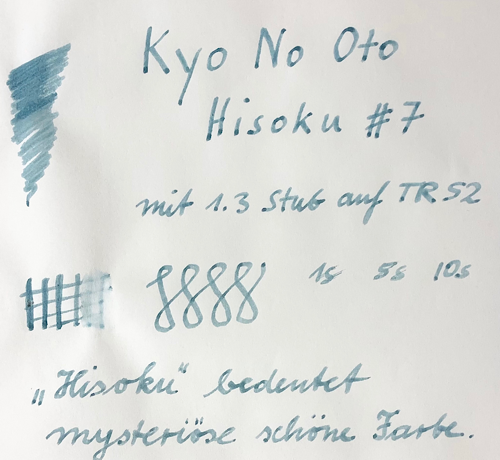 Kyo No Oto
Hisoku #7
mit 1.3 Stub auf TR 52
1s 5s 10s
„Hisoku“ bedeutet
mysteriöse schöne Farbe.